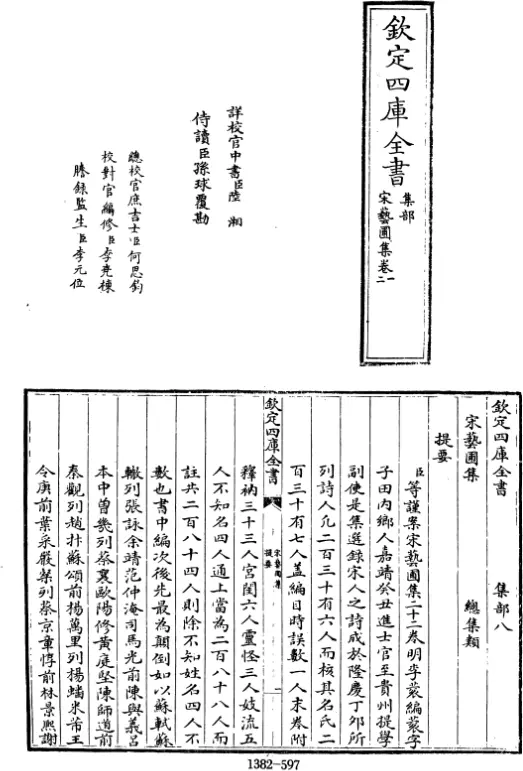 欽定四庫全書
集部
宋藝圃集卷一
二
詳校官中書臣陸湘
侍讀臣孫球覆勘
總校官庶吉士臣何思鈞
校對官編修臣李堯棟
謄錄監生臣李元位
欽定四庫全書
集部八
宋藝圃集
總集類
提要
臣等謹案宋藝圃集二十二卷明李蓘編蓘字
子田內鄉人嘉靖癸丑進士官至貴州提學
副使是集選錄宋人之詩成於隆慶丁卯所
列詩人凡二百三十有六人而核其名氏二
百三十有七人蓋編目時誤數一人末卷附
欽定四庫全書
宋藝圃集
提要
一
釋衲三十三人宮閨六人靈怪三人妓流五
人不知名四人通上當為二百八十八人而
註共二百八十四人則除不知姓名四人不
數也書中編次後先最為顛倒如以蘇軾蘇
轍列張詠余靖范仲淹司馬光前陳與義呂
本中曾幾列蔡襄歐陽修黃庭堅陳師道前
秦觀列趙抃蘇頌前楊萬里列楊蟠米芾王
令庚前葉采嚴粲列蔡京章惇前林景熙謝
1382-597